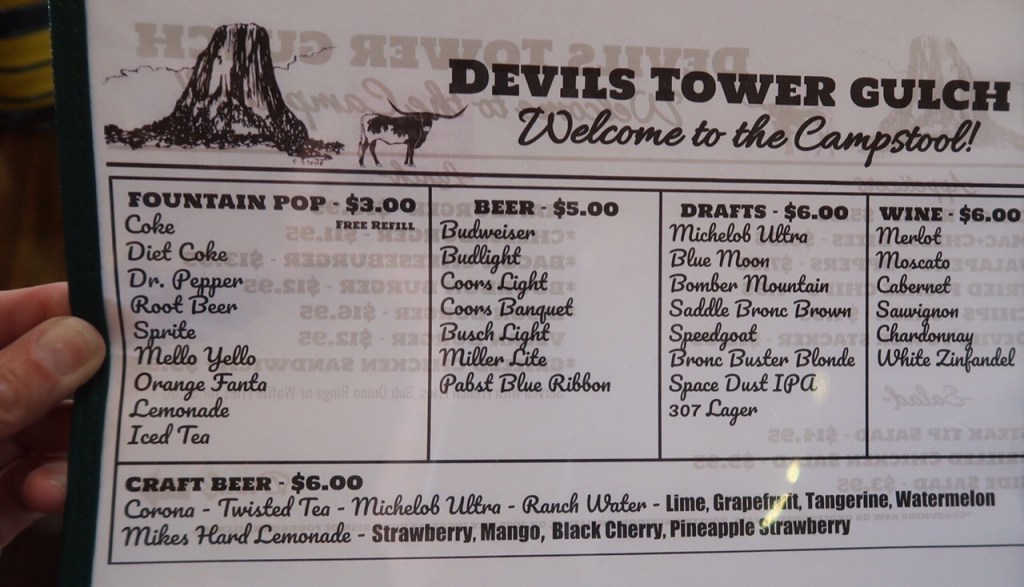 DEVILS TOWER GULCH
Welcome to the Campstool!
FOUNTAIN POP - $3.00
FREE REFILL
Coke
Diet Coke
Dr. Pepper
Root Beer
Sprite
Mello Yello
Orange Fanta
Lemonade
Iced Tea
BEER - $5.00
Budweiser
Budlight
Coors Light
Coors Banquet
Busch Light
Miller Lite
Pabst Blue Ribbon
DRAFTS - $6.00
Michelob Ultra
Blue Moon
Bomber Mountain
Saddle Bronc Brown
Speedgoat
Bronc Buster Blonde
Space Dust IPA
307 Lager
WINE - $6.00
Merlot
Moscato
Cabernet
Sauwignon
Chardonnay
White Zinfandel
CRAFT BEER - $6.00
Corona - Twisted Tea - Michelob Ultra - Ranch Water - Lime, Grapefruit, Tangerine, Watermelon
Mikes Hard Lemonade - Strawberry, Mango, Black Cherry, Pineapple Strawberry